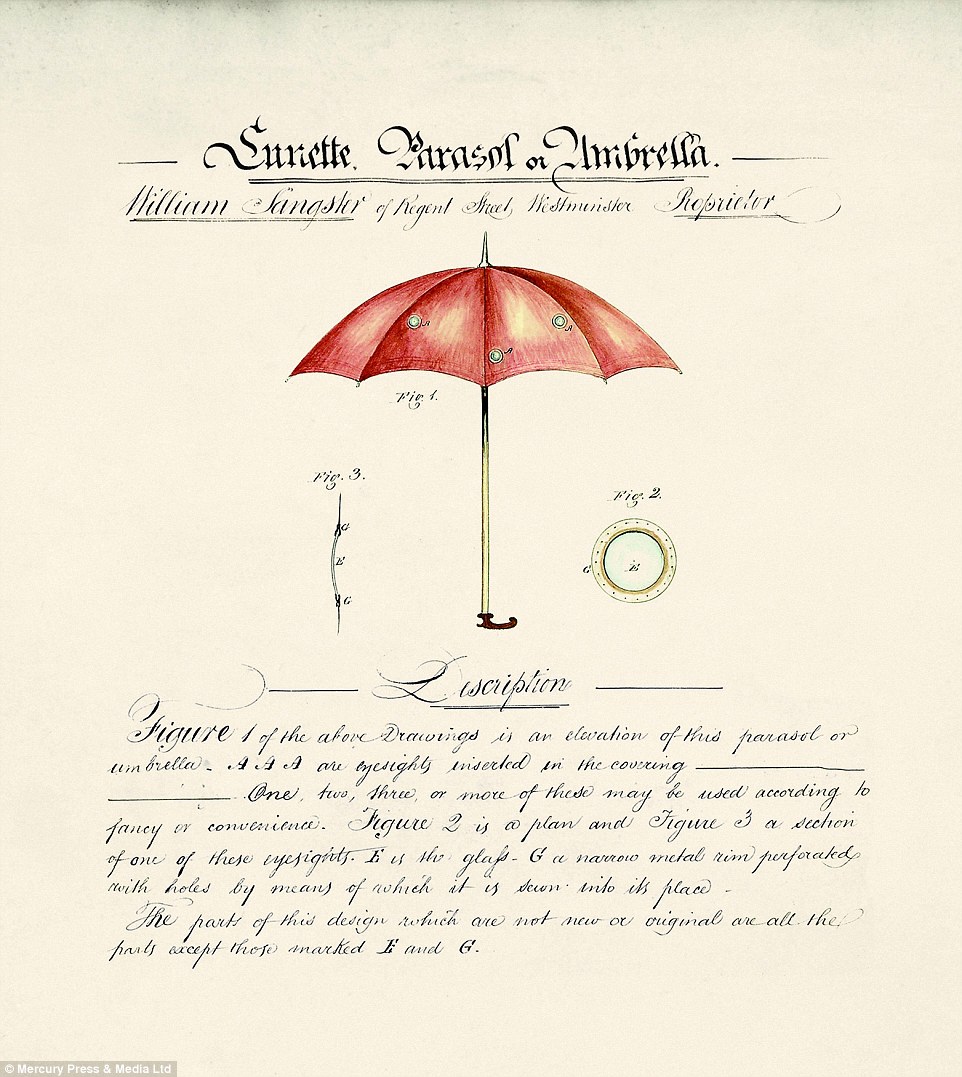 Lunette. Parasol or Umbrella.
William Sangster of Regent Street, Westminster Proprietor
A
A
A
Fig. 1.
Fig. 3.
G
E
G
Fig. 2.
G
E
Description
Figure 1 of the above Drawings is an elevation of this parasol or
umbrella - A A A are eyesights inserted in the covering
One, two, three, or more of these may be used according to
fancy or convenience. Figure 2 is a plan and Figure 3 a section
of one of these eyesights. E is the glaſs - G a narrow metal rim perforated
with holes by means of which it is sewn into its place -
The parts of this design which are not new or original are all the
parts except those marked E and G.
© Mercury Press & Media Ltd